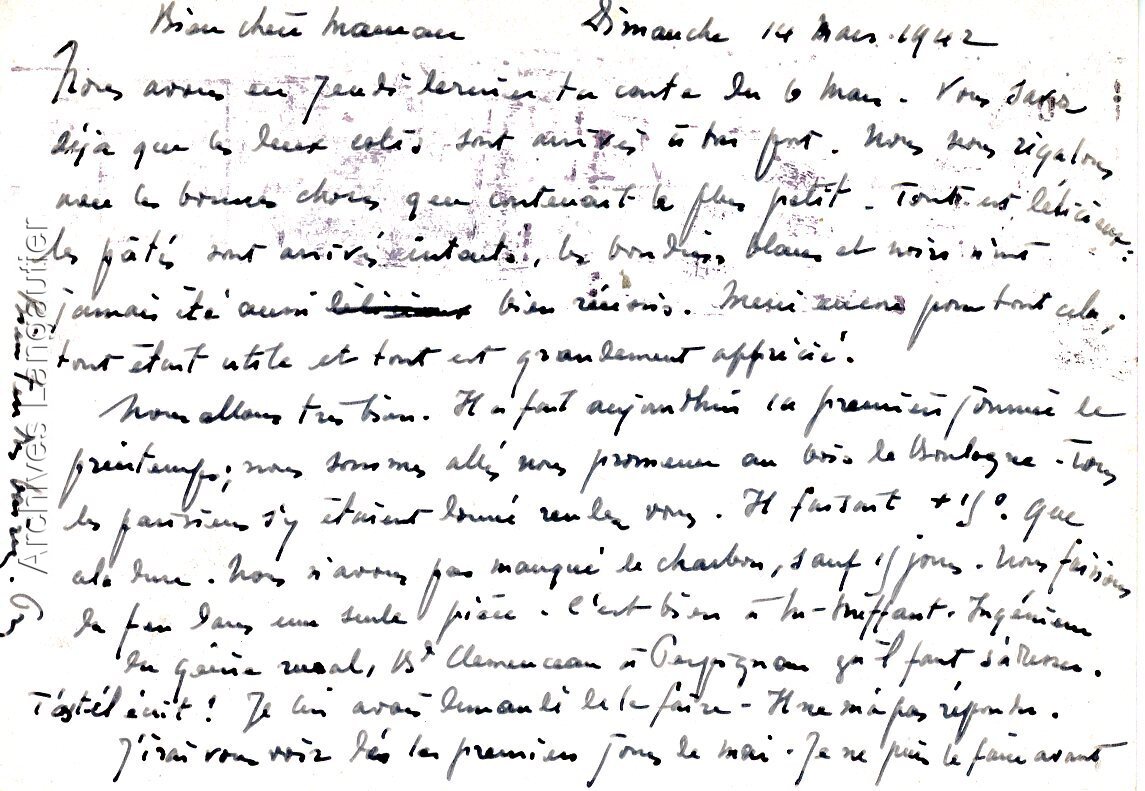 Bien chère maman Dimanche 14 Mars 1942
Nous avons eu Jeudi dernier ta carte du 6 Mars. Vous savez
déjà que les deux colis sont arrivés à bon port. Nous nous régalons
avec les bonnes choses que contenait le plus petit. Tout est délicieux.
les pâtés sont arrivés intacts, les boudins blancs et noirs n'ont
jamais été aussi bien réussis. Merci encore pour tout cela,
tout était utile et tout est grandement apprécié.
Nous allons très bien. Il a fait aujourd'hui la première journée de
printemps; nous sommes allés nous promener au bois de Boulogne. Tous
les parisiens s'y étaient donné rendez vous. Il faisait +15°. Que
cela dure. Nous n'avons pas manqué de charbon, sauf 15 jours. Nous faisions
du feu dans une seule pièce. C'est bien à Ingénieur
du génie rural, Bd Clemenceau à Perpignan qu'il faut s'adresser.
T'a-t-il écrit! Je lui avais demandé de le faire - Il ne m'a pas répondu.
J'irai vous voir dès les premiers jours de mai. Je ne puis le faire avant
Archives Langautier